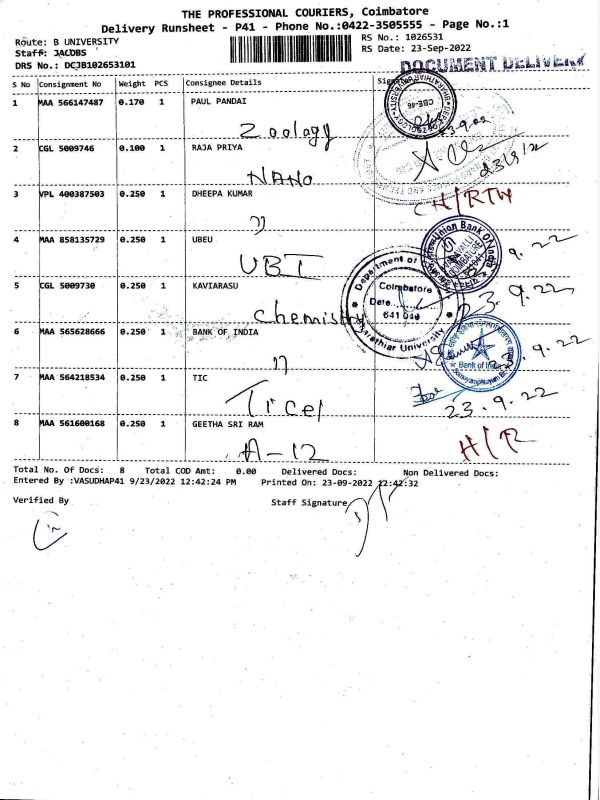 THE PROFESSIONAL COURIERS, Coimbatore
Delivery Runsheet - P41 - Phone No.:0422-3505555 - Page No.:1
Route: B UNIVERSITY
RS No.: 1026531
Staff: JACOBS
RS Date: 23-Sep-2022
DRS No.: DCJB102653101
DOCUMENT DELIVERY
S No Consignment No Weight PCS Consignee Details
1 MAA 566147487 0.170 1 PAUL PANDAI
Zoology
2 CGL 5009746 0.100 1 RAJA PRIYA
NANO
3 VPL 400387503 0.250 1 DHEEPA KUMAR
CH/RTN
4 MAA 858135729 0.250 1 UBEU
UBI
9.22
5 CGL 5009730 0.250 1 KAVIARASU
Chemistry
Department of
Coimbatore
Date
641 046
Bharathiar University
23.9.22
6 MAA 565628666 0.250 1 BANK OF INDIA
Bank of India
23.9.22
7 MAA 564218534 0.250 1 TIC
Ticel
23.9.22
8 MAA 561600168 0.250 1 GEETHA SRI RAM
A-12
H/R
Total No. Of Docs: 8 Total COD Amt: 0.00 Delivered Docs: Non Delivered Docs:
Entered By :VASUDHAP41 9/23/2022 12:42:24 PM Printed On: 23-09-2022 12:42:32
Verified By Staff Signature